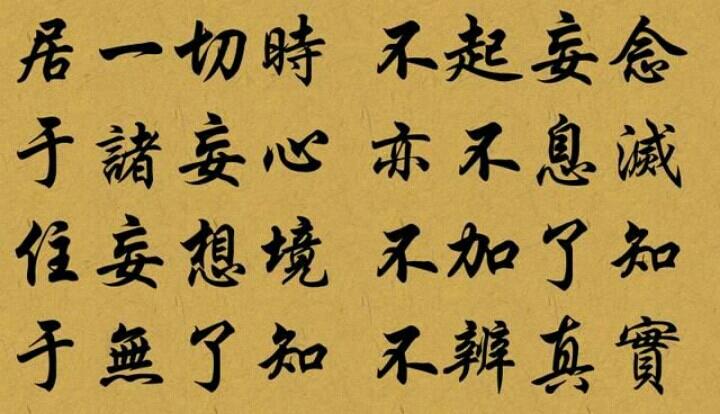 居一切時 不起妄念
于諸妄心 亦不息滅
住妄想境 不加了知
于無了知 不辨真實